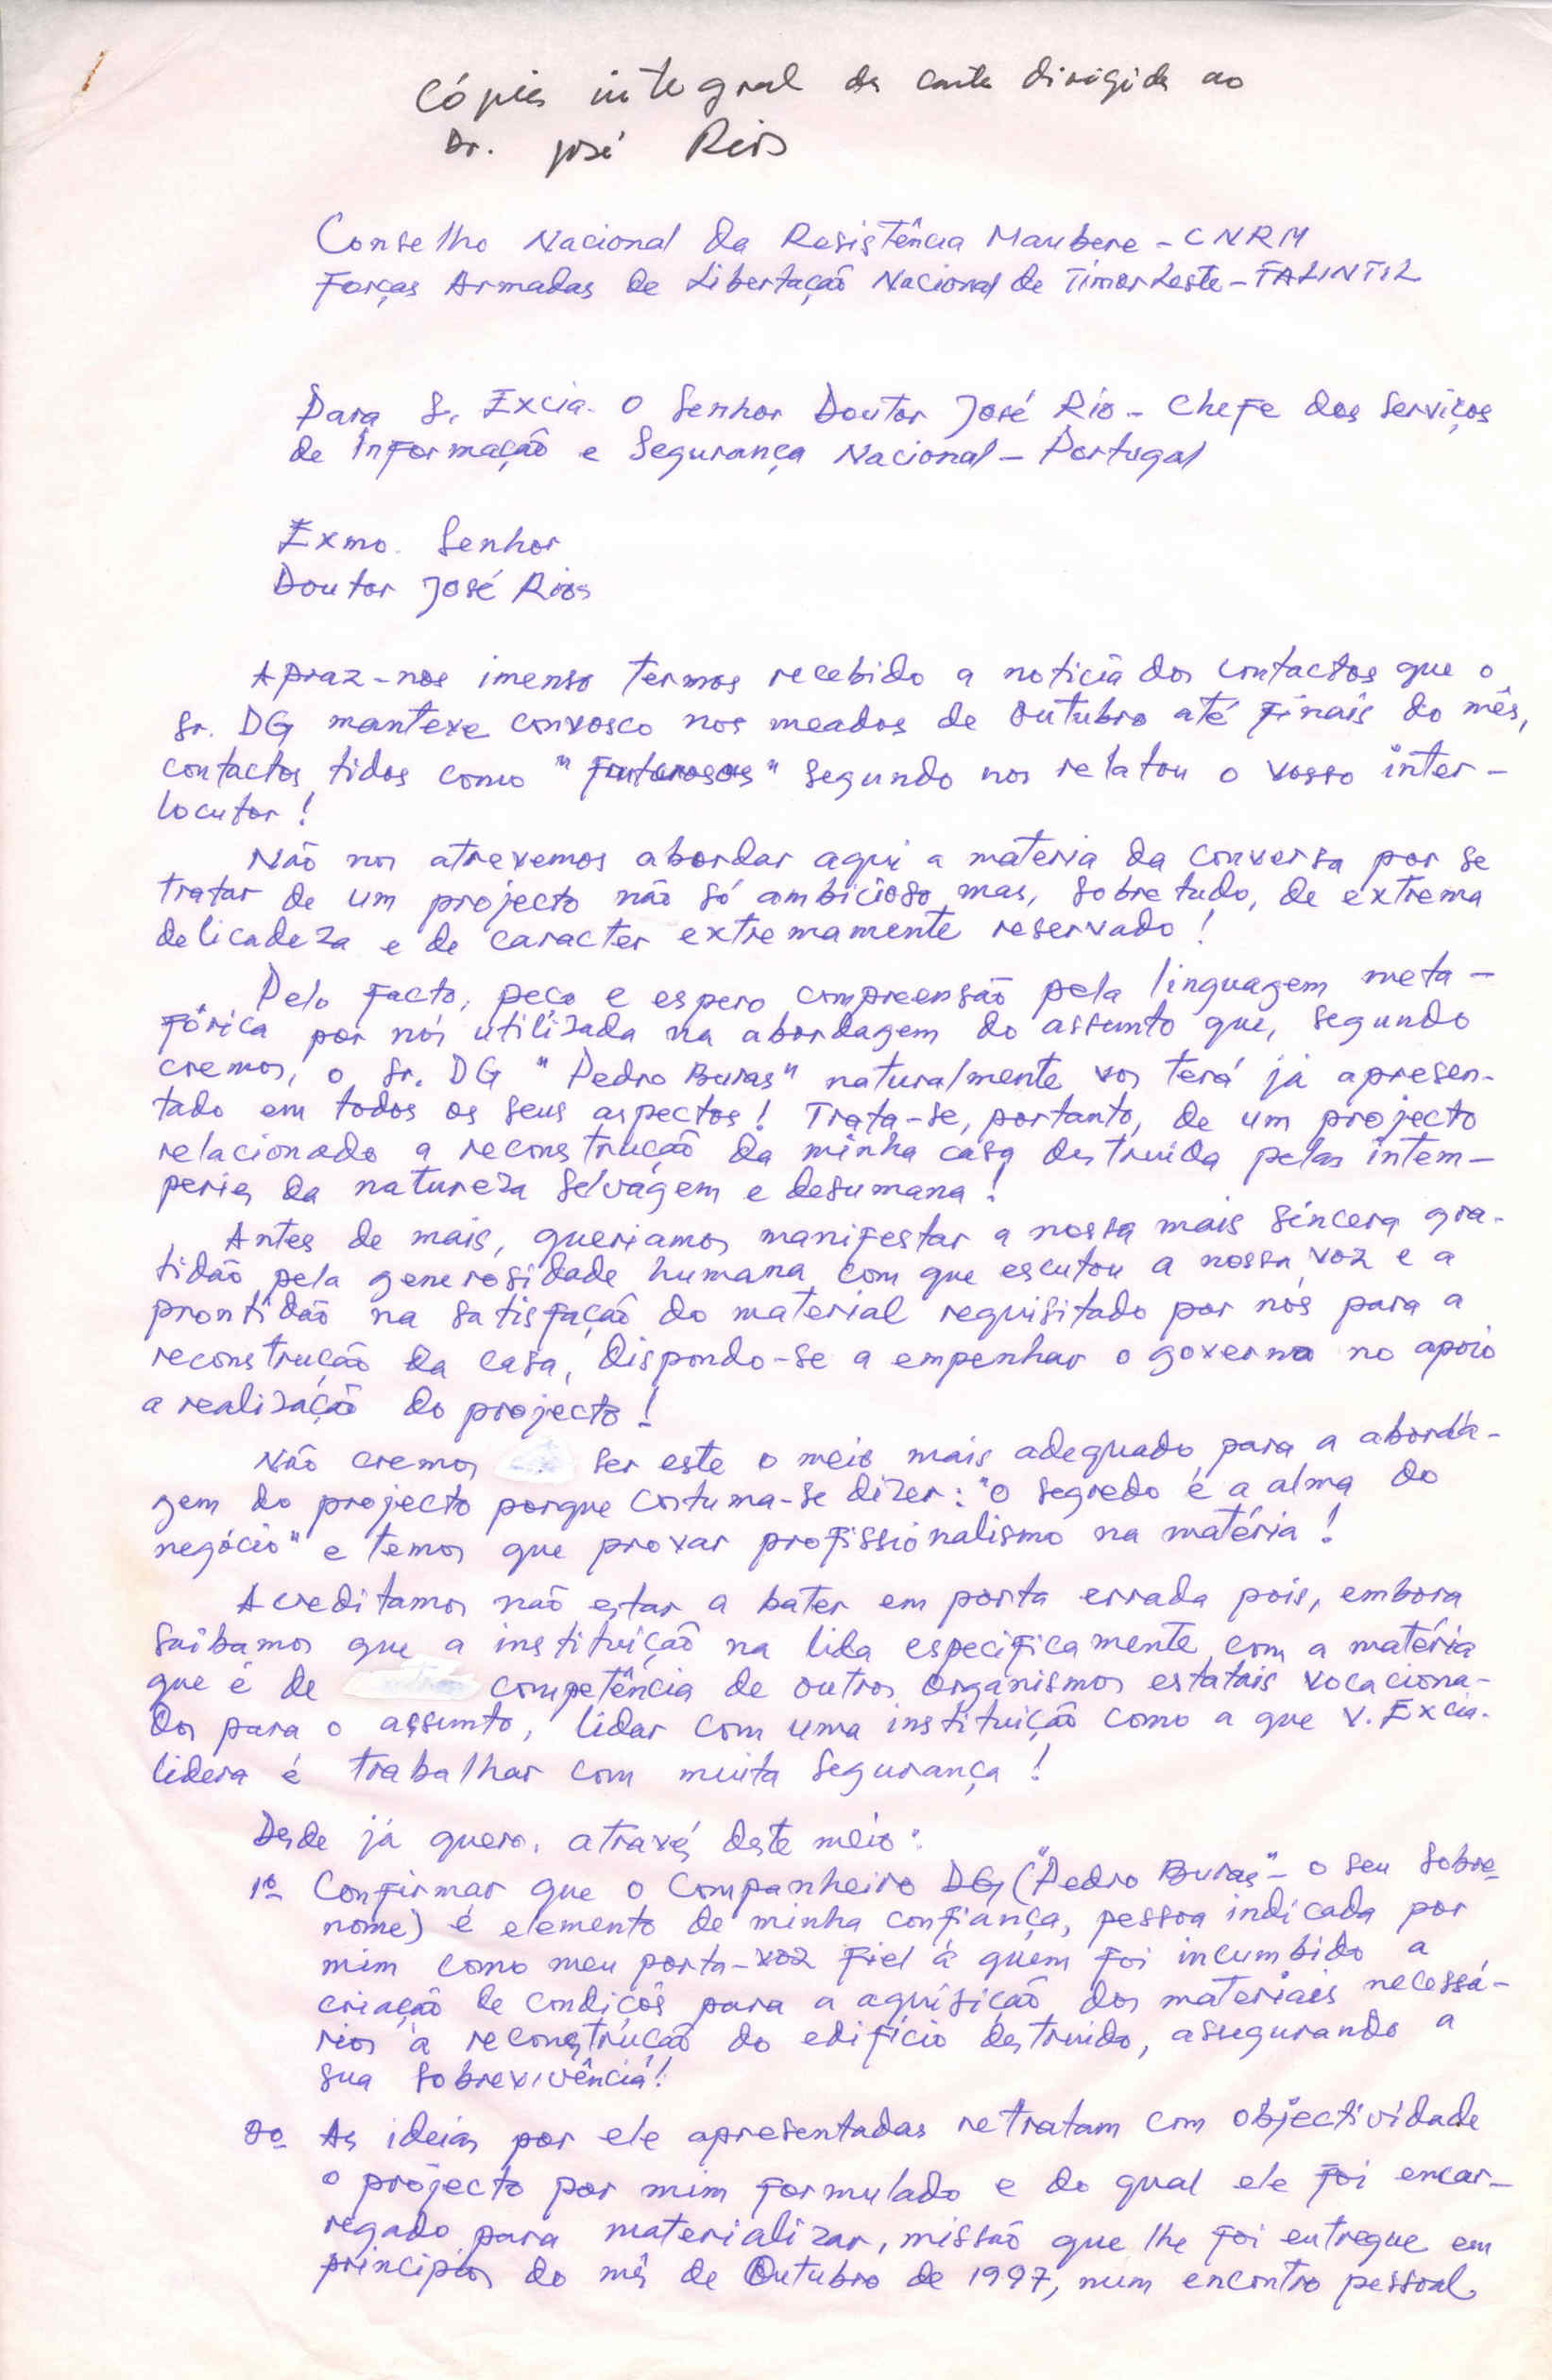 Cópia integral da carta dirigida ao
Dr. José Rios
Conselho Nacional da Resistência Maubere - CNRM
Forças Armadas de Libertação Nacional de Timor Leste - FALINTIL
Para S. Excia. o Senhor Doutor José Rio - Chefe dos Serviços
de Informação e Segurança Nacional - Portugal
Exmo. Senhor
Doutor José Rios
Apraz-nos imenso termos recebido a notícia dos contactos que o
Sr. DG manteve convosco nos meados de Outubro até finais do mês,
contactos tidos como "frutuosos" segundo nos relatou o vosso inter-
locutor!
Não nos atrevemos abordar aqui a materia da conversa por se
tratar de um projecto não só ambicioso mas, sobretudo, de extrema
delicadeza e de caracter extremamente reservado!
Pelo facto, peço e espero compreensão pela linguagem meta-
fórica por nós utilizada na abordagem do assunto que, segundo
cremos, o Sr. DG "Pedro Buras" naturalmente vos terá já apresen-
tado em todos os seus aspectos! Trata-se, portanto, de um projecto
relacionado a reconstrução da minha casa destruida pelas intem-
peries da natureza selvagem e desumana!
Antes de mais, queriamos manifestar a nossa mais sincera gra-
tidão pela generosidade humana com que escutou a nossa voz e a
prontidão na satisfação do material requisitado por nós para a
reconstrução da casa, dispondo-se a empenhar o governo no apoio
a realização do projecto!
Não cremos ser este o meio mais adequado para a aborda-
gem do projecto porque costuma-se dizer: "o segredo é a alma do
negócio" e temos que provar profissionalismo na matéria!
Acreditamos não estar a bater em porta errada pois, embora
saibamos que a instituição na lida especificamente com a matéria
que é de competência de outros organismos estatais vocaciona-
dos para o assunto, lidar com uma instituição como a que V. Excia.
lidera é trabalhar com muita segurança!
Desde já quero, através deste meio:
1º Confirmar que o Companheiro DG ("Pedro Buras" - o seu sobre-
nome) é elemento de minha confiança, pessoa indicada por
mim como meu porta-voz fiel à quem foi incumbido a
criação de condições para a aquisição dos materiais necessá-
rios à reconstrução do edifício destruido, assegurando a
sua sobrevivência!
2º As ideias por ele apresentadas retratam com objectividade
o projecto por mim formulado e do qual ele foi encar-
regado para materializar, missão que lhe foi entregue em
principios do mês de Outubro de 1997, num encontro pessoal